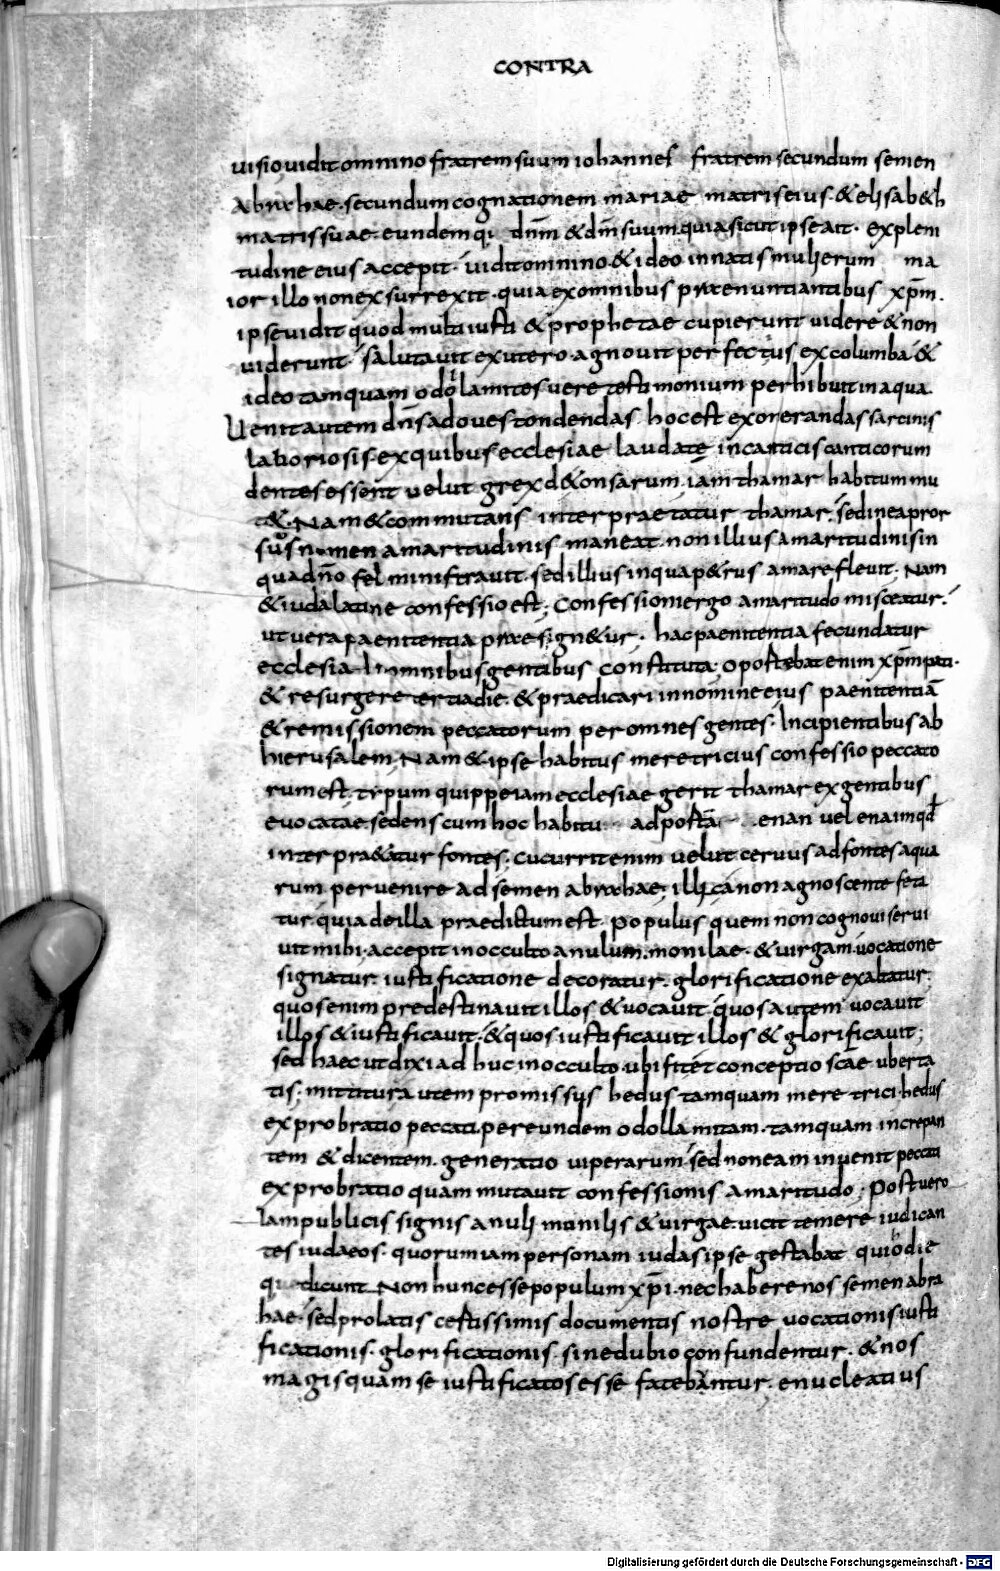 CONTRA
visio vidit omnino fratrem suum iohannes fratrem secundum semen
Abrahae. secundum cognationem mariae matris eius. & elisab&h
matris suae. eundemqi dn̄m & dm̄ suum. quia sicut ipse ait. ex pleni
tudine eius accepit. vidit omnino. & ideo in natis mulierum ma
ior illo non exsurrexit. quia ex omnibus praenuntiantibus xp̄m.
ipse vidit quod multi iusti & prophetae cupierunt videre & non
viderunt. salutavit ex utero. agnovit perfectus ex columba. &
ideo tamquam odollamites vere testimonium perhibuit in aqua.
Venit autem dn̄s ad oves tondendas. hoc est exonerandas sarcinis
laboriosis. ex quibus ecclesiae laudatę in canticis canticorum
dentes essent velut grex d&onsarum. iam thamar habitum mu
t&. Nam & commutans interpraetatur thamar. sed in ea pror
sus nomen amaritudinis maneat. non illius amaritudinis in
qua dn̄o fel ministravit. sed illius in qua p&rus amare flevit. Nam
& iuda latine confessio est; Confessioni ergo amaritudo misceatur.
ut vera paenitentia praesign&ur. hac paenitentia fecundatur
ecclesia In omnibus gentibus constituta; oportebat enim xp̄m pati.
& resurgere tertia die. & praedicari in nomine eius paenitentiā
& remissionem peccatorum per omnes gentes. Incipientibus ab
hierusalem; Nam & ipse habitus meretricius confessio peccato
rum est. typum quippe iam ecclesiae gerit thamar ex gentibus
evocatae. sedens cum hoc habitu ad portā enan vel enaim qd̄
interpra&atur fontes. cucurrit enim velut cervus ad fontes aqua
rum. pervenire ad semen abrahae. illic a non agnoscente feta
tur. quia de illa praedictum est. Populus quem non cognovi servi
vit mihi. accepit in occulto anulum. monilae. & virgam. vocatione
signatur. iustificatione decoratur. glorificatione exaltatur.
quos enim predestinavit illos & vocavit. quos autem vocavit
illos & iustificavit. & quos iustificavit illos & glorificavit;
sed haec ut dixi adhuc in occulto. ubi fit et conceptio scāe uberta
tis. mittitur autem promissus hedus tamquam meretrici. hedus
exprobratio peccati. per eundem odollamitam. tamquam increpan
tem & dicentem. generatio viperarum. sed non eam invenit peccati
exprobratio quam mutavit confessionis amaritudo; Post vero
Iam publicis signis anuli monilis & virgae. vicit temere iudican
tes iudaeos. quorum iam personam iudas ipse gestabat qui hodie
dicunt Non hunc esse populum xp̄i. nec habere nos semen abra
hae. sed prolatis certissimis documentis nostre vocationis iusti
ficationis. glorificationis. sine dubio confundentur. & nos
magis quam se iustificatos esse fatebantur. enucleatius
Digitalisierung gefördert durch die Deutsche Forschungsgemeinschaft - DFG